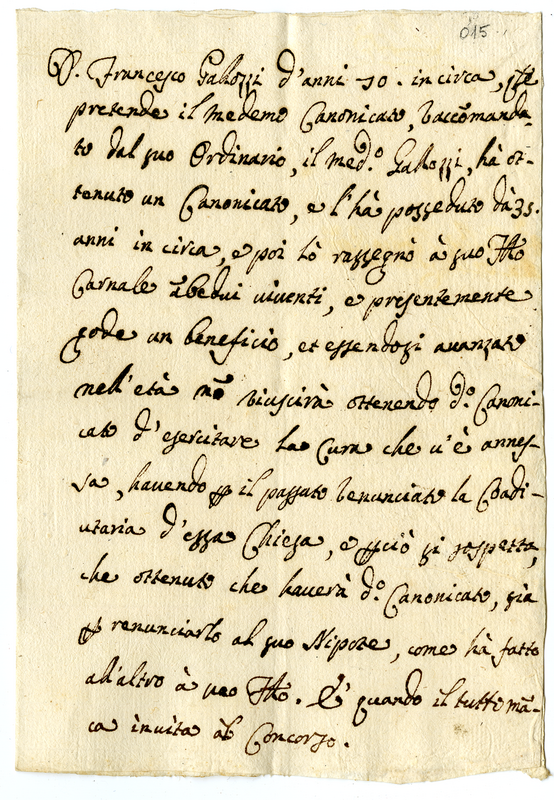 015
D. Francesco Gallozzi d'anni 50. in circa,
pretende il medemo Canonicato, raccomanda-
to dal suo Ordinario, il med.o Gallozzi, hà ot-
tenuto un Canonicato, e l'hà posseduto dà 35.
anni in circa, e poi lò rassegnò à suo
Carnale ambedui viventi, e presentemente
gode un beneficio, et essendosi avanzato
nell'età nō riuscirà ottenendo d.o Canoni-
cato d'esercitare la Cura che v'è annes-
sa, havendo ꝑ il passato renunciato la Coadi-
utaria d'essa Chiesa, e ꝑciò si sospetta,
che ottenuto che haverà d.o Canonicato, sia
ꝑ renunciarlo al suo Nipote, come hà fatto
all'altro à suo E' quando il tutto mā-
ca invita àl Concorso.